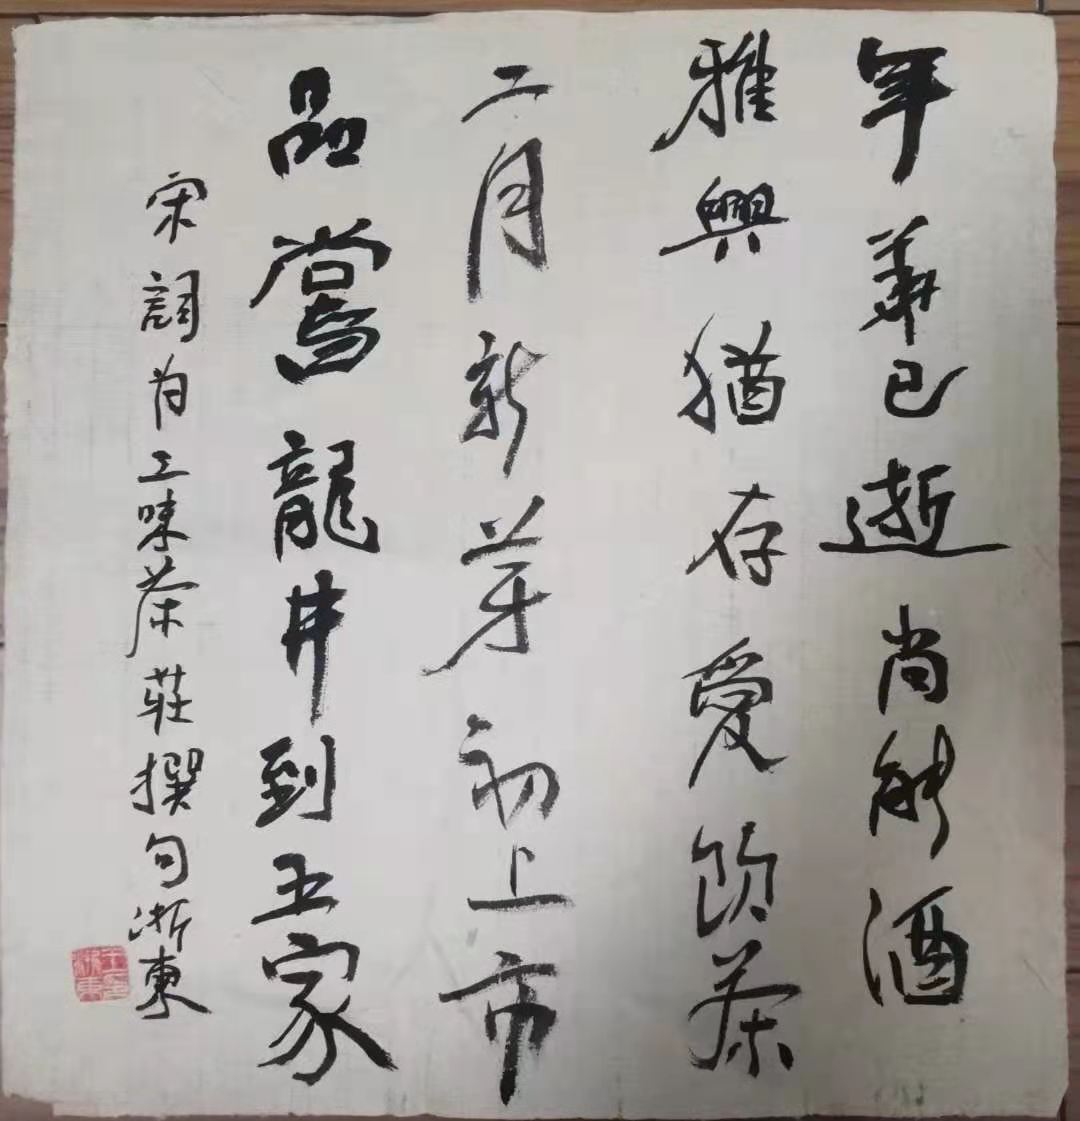 年華已逝尚能酒
雅興猶存愛飲茶
二月新芽初上市
品嘗龍井到王家
宋詞为味茶莊撰句浙東